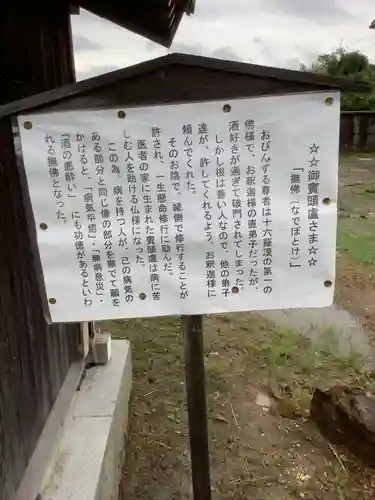 ☆☆御賓頭盧さま☆☆
「撫佛（なでぼとけ）」
おびんずる尊者は十六羅漢の第一の
佛様で、お釈迦様の直弟子だったが、
酒好きが過ぎて破門されてしまった。
しかし根は善い人なので、他の弟子
達が、許してくれるよう、お釈迦様に
頼んでくれた。
そのお陰で、縁側で修行することが
許され、一生懸命修行に励んだ。
医者の家に生まれた賓頭盧は病に苦
しむ人を助ける仏様になった。
この為、病を持つ人が、己の病気の
ある部分と同じ部分を撫でて願を
かけると、「病気平癒」・「無病息災」・
「酒の悪酔い」にも功徳があるといわ
れる撫佛となった。